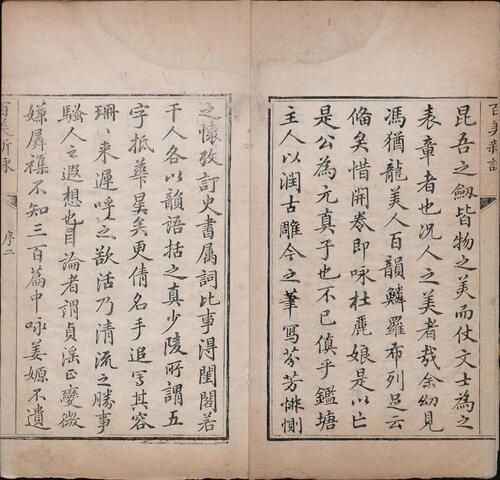 百美新詠
昆吾之劔皆物之美而仗文士為之
表章者也况人之美者哉余幼見
馮猶龍美人百韻鱗羅希列足云
偹矣惜開卷即咏杜麗娘是以亡
是公為元真子也不已傎乎鑑塘
主人以润古雕今之筆寫芬芳悱惻
之懷攷訂史書属詞比事得閨閣若
干人各以韻語括之真少陵所謂五
字抵華星矣更倩名手追寫其容
珊〻来遲呼之欲活乃清流之勝事
騷人之遐想也目論者謂貞淫正變微
嫌孱襍不知三百篇中咏姜嫄不遺
百美新詠
序二